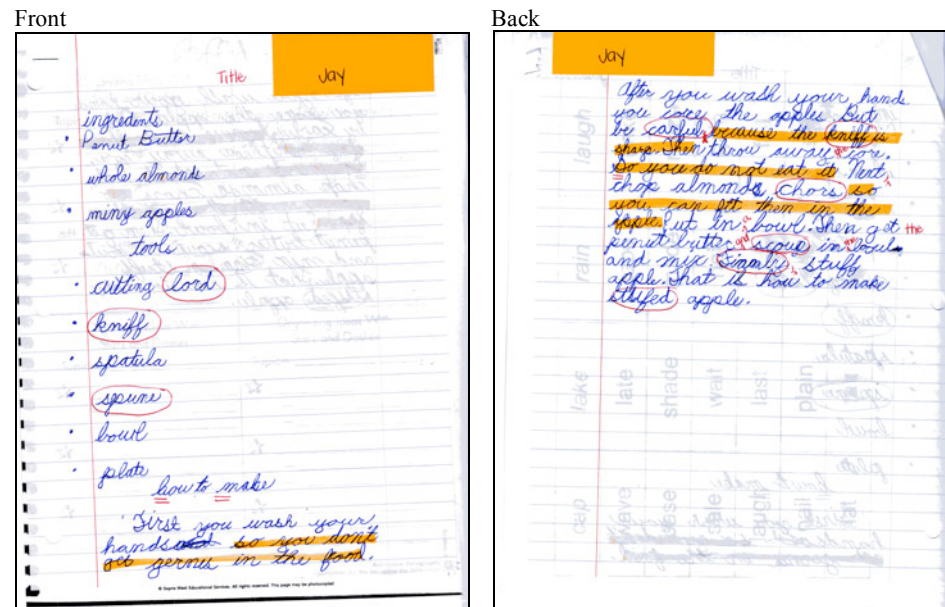 Front
Jay
Title
ingredients
• Penut Butter
• whole almonds
• miny apples
tools
• cutting lord
• kniff
• spatula
• spune
• bowl
• plate
how to make
First you wash your
hands so you don't
get germs in the food.
© Sopris West Educational Services. All rights reserved. This page may be photocopied
Back
Jay
After you wash your hands
you core the apples. But
be carful because the kniff is
sharp. Then throw away the core.
So you do not eat it. Next,
chop almonds, chors so
you can fit them in the
apple. Put in a bowl. Then get the
penut butter and scoup in the bowl
and mix. Finnaly, stuff
apple. That is how to make
stufed apple.
laugh
rain
lake
late
shade
wait
last
plain
cap